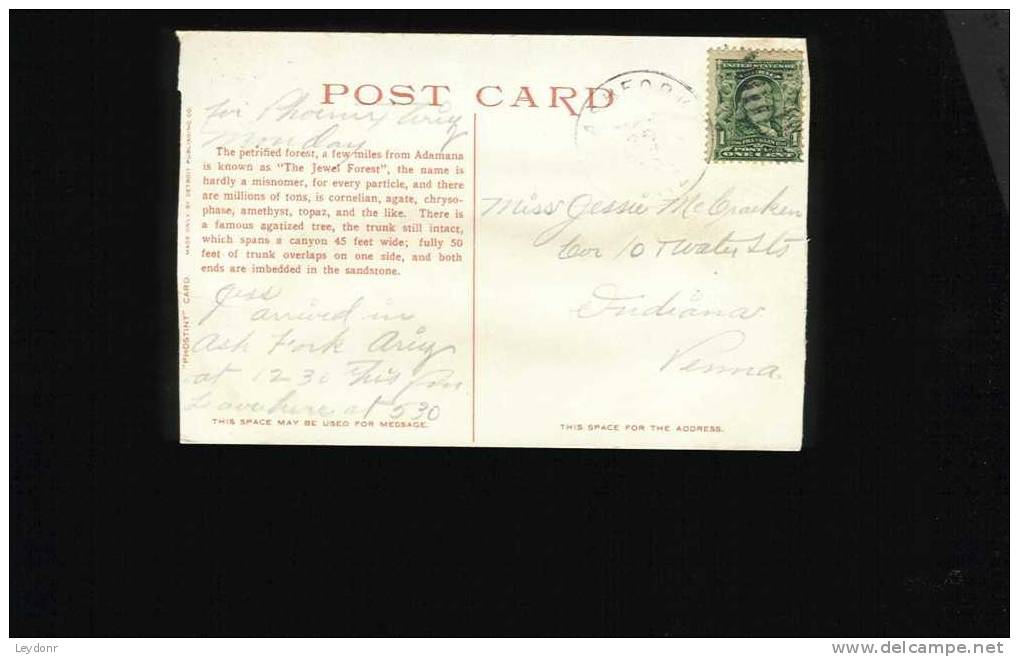 POST CARD
for Phoenix Ariz
Monday
The petrified forest, a few miles from Adamana
is known as "The Jewel Forest", the name is
hardly a misnomer, for every particle, and there
are millions of tons, is cornelian, agate, chryso-
phase, amethyst, topaz, and the like. There is
a famous agatized tree, the trunk still intact,
which spans a canyon 45 feet wide; fully 50
feet of trunk overlaps on one side, and both
ends are imbedded in the sandstone.
Jess
arrived in
Ash Fork Ariz
at 12 30 this pm
Leave here at 530
THIS SPACE MAY BE USED FOR MESSAGE.
"PHOSTINT" CARD. MADE ONLY BY DETROIT PUBLISHING CO.
ASH FORK
UNITED STATES OF
1 1
POSTAGE
ONE CENT
Miss Jessie McCracken
Cor 10 & Water Sts
Indiana
Penna.
THIS SPACE FOR THE ADDRESS.
Leydonr
www.delcampe.net